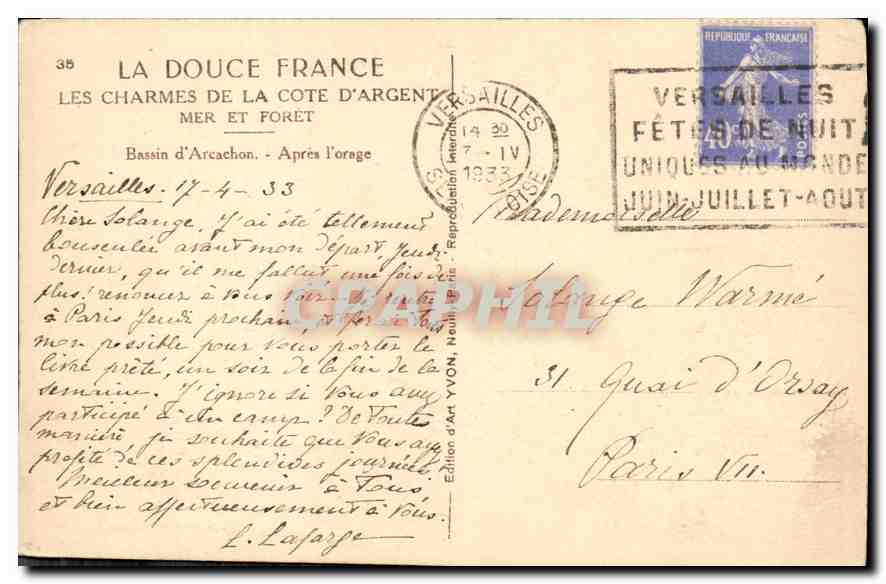 35
LA DOUCE FRANCE
LES CHARMES DE LA COTE D'ARGENT
MER ET FORÊT
Bassin d'Arcachon. - Après l'orage
Versailles. 17-4-33
Chère Solange, J'ai été tellement
bousculée avant mon départ, Jeudi
dernier, qu'il me fallut une fois de
plus! renoncer à vous voir. Je rentre
à Paris Jeudi prochain, et ferai tous
mon possible pour vous porter le
livre prêté, un soir de la fin de la
semaine. J'ignore si vous avez
participé à un camp? De toutes
manière, je souhaite que vous ayez
profité de ces splendides journées
Meilleur souvenir à Tous
et bien affectueusement à vous.
L. Lafarge
Edition d'Art YVON, Neuilly-Paris - Reproduction Interdite
VERSAILLES
14 30
7 - IV
1933
SEINE OISE
REPUBLIQUE FRANÇAISE
40
POSTES
VERSAILLES
FÊTES DE NUIT
UNIQUES AU MONDE
JUIN-JUILLET-AOUT
Mademoiselle
Solange Warmé
31 Quai d'Orsay
Paris VII.
GRAPHIL